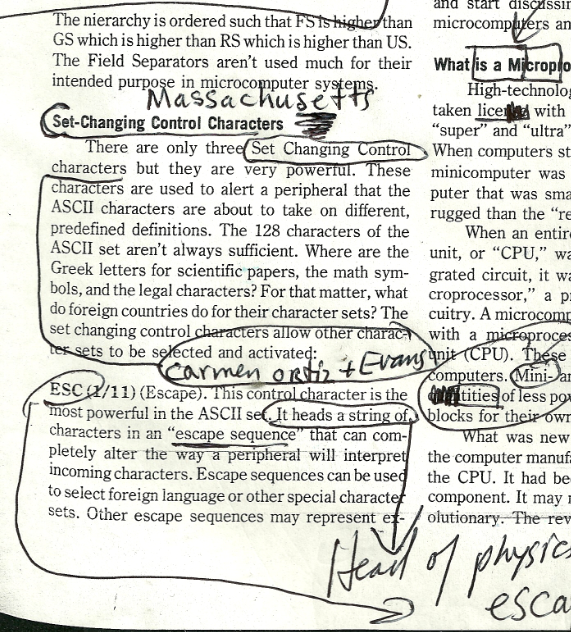 The hierarchy is ordered such that FS is higher than
GS which is higher than RS which is higher than US.
The Field Separators aren't used much for their
intended purpose in microcomputer systems.
Massachusetts
Set-Changing Control Characters
There are only three Set Changing Control
characters but they are very powerful. These
characters are used to alert a peripheral that the
ASCII characters are about to take on different,
predefined definitions. The 128 characters of the
ASCII set aren't always sufficient. Where are the
Greek letters for scientific papers, the math sym-
bols, and the legal characters? For that matter, what
do foreign countries do for their character sets? The
set changing control characters allow other charac-
ter sets to be selected and activated:
Carmen Ortiz + Evans
ESC (1/11) (Escape). This control character is the
most powerful in the ASCII set. It heads a string of
characters in an "escape sequence" that can com-
pletely alter the way a peripheral will interpret
incoming characters. Escape sequences can be used
to select foreign language or other special character
sets. Other escape sequences may represent ex-
Head of physic
esca
and start discussin
microcomputers an
What is a Micropro
High-technolog
taken with
"super" and "ultra"
When computers st
minicomputer was
puter that was sma
rugged than the "re
When an entire
unit, or "CPU," wa
grated circuit, it wa
croprocessor," a p
cuitry. A microcomp
with a microproces
unit (CPU). These
computers. Mini- a
tities of less po
blocks for their own
What was new
the computer manuf
the CPU. It had be
component. It may
olutionary. The rev